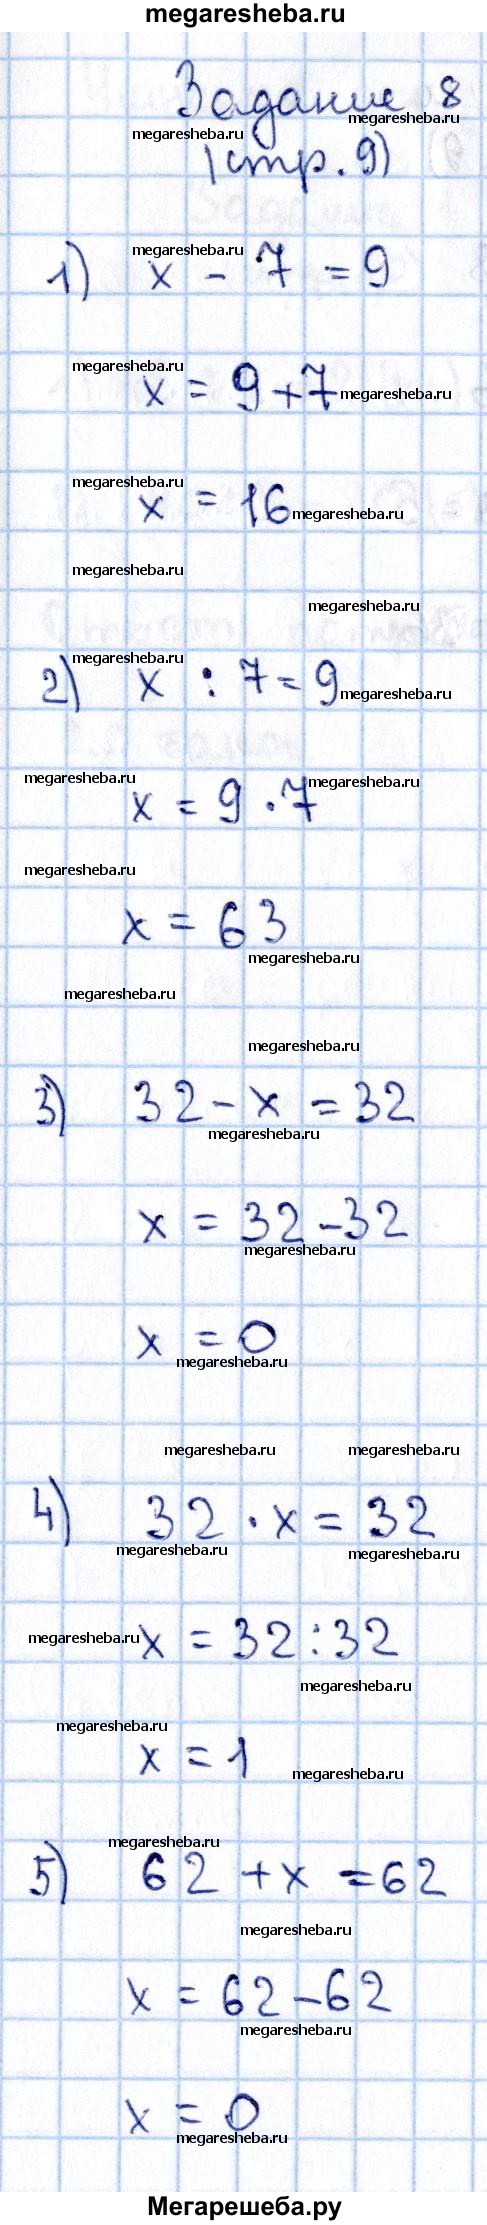 megaresheba.ru
Задание 8
megaresheba.ru
megaresheba.ru
(стр. 9)
megaresheba.ru
1) x - 7 = 9
megaresheba.ru
x = 9 + 7
megaresheba.ru
megaresheba.ru
x = 16
megaresheba.ru
megaresheba.ru
megaresheba.ru
megaresheba.ru
2) x : 7 = 9
megaresheba.ru
megaresheba.ru
megaresheba.ru
x = 9 · 7
megaresheba.ru
x = 63
megaresheba.ru
megaresheba.ru
megaresheba.ru
3) 32 - x = 32
megaresheba.ru
x = 32 - 32
megaresheba.ru
x = 0
megaresheba.ru
megaresheba.ru
megaresheba.ru
4) 32 · x = 32
megaresheba.ru
megaresheba.ru
megaresheba.ru
x = 32 : 32
megaresheba.ru
megaresheba.ru
x = 1
megaresheba.ru
megaresheba.ru
5) 62 + x = 62
megaresheba.ru
x = 62 - 62
megaresheba.ru
x = 0
megaresheba.ru
Мегарешеба.ру